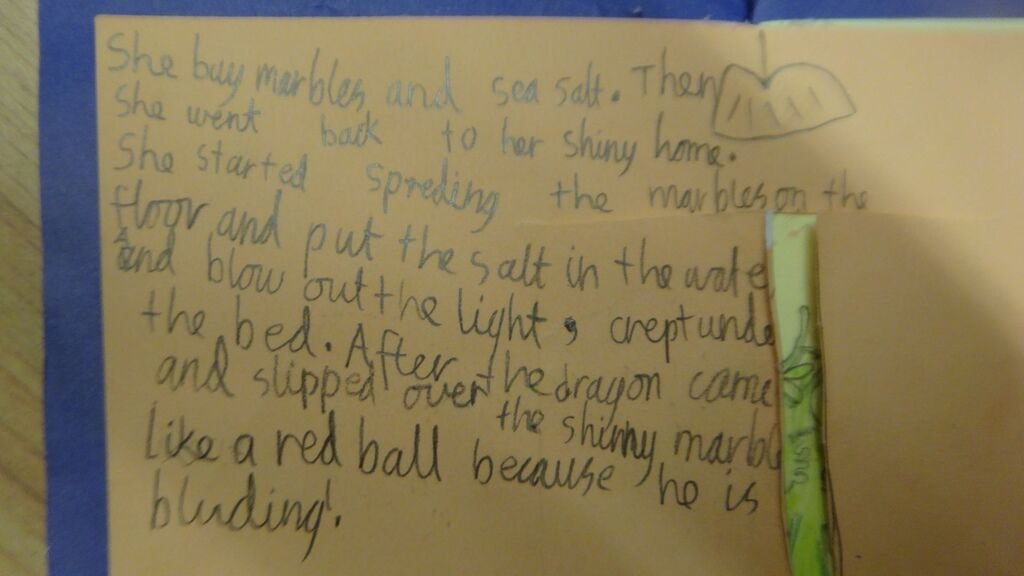 She buy marbles and sea salt. Then
she went back to her shiny home.
She started spreding the marbles on the
floor and put the salt in the wate
and blow out the light, crept unde
the bed. After the dragon came
and slipped over the shinny marbl
like a red ball because he is
bluding!.